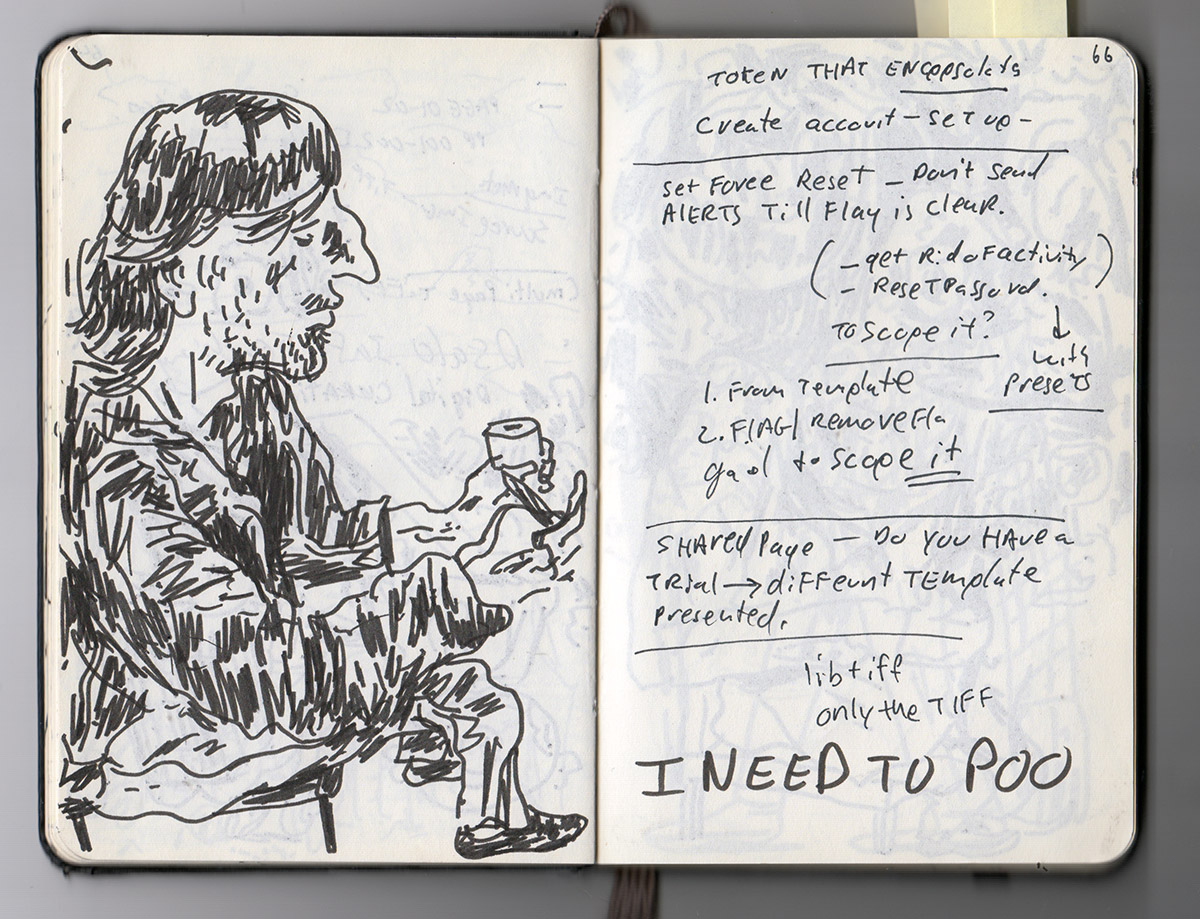 66
TOKEN THAT ENCAPSULATS
Create account - set up -
set Force Reset - Don't send
AlERTS Till Flag is clear.
( - get Rid oF activity )
- ReseT Password.
To scope it?
↓
with
PreseTs
1. From Template
2. FlAG/ RemoveFla
goal to scope it
SHAred Page — Do you HAve a
TRial → diFFerent TEmplate
Presented.
libtiff
only the TIFF
I NEED TO POO